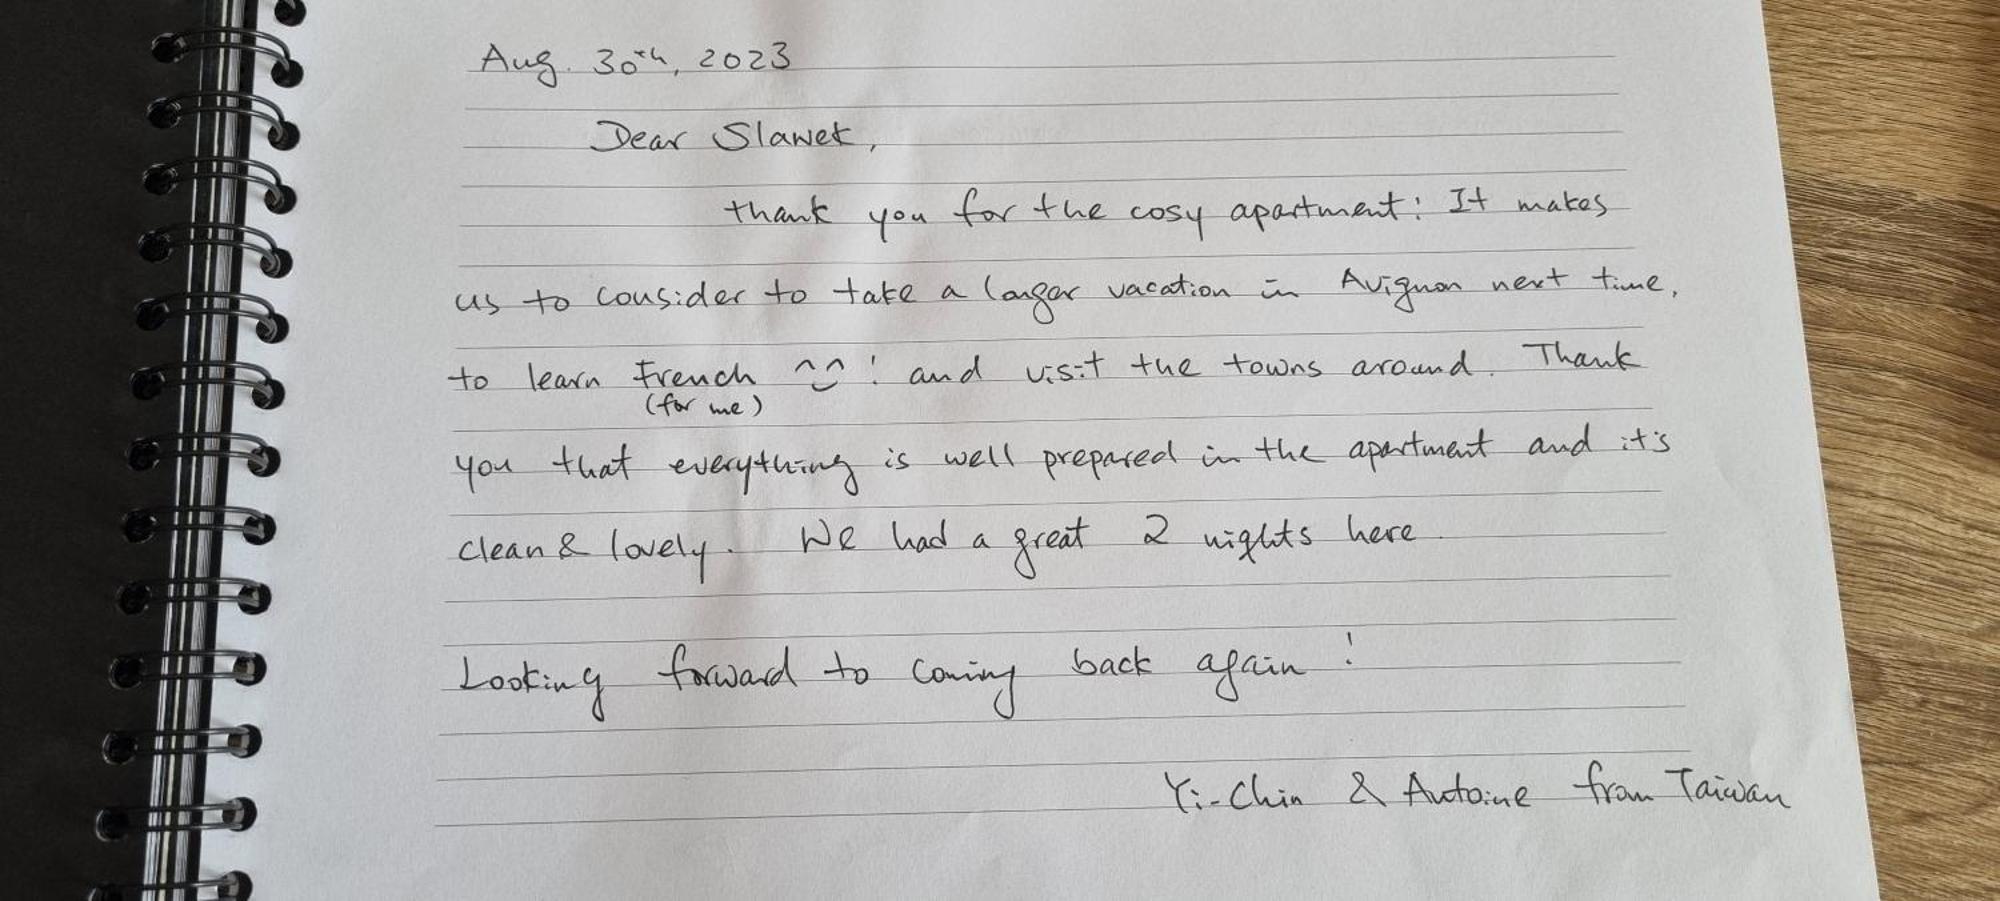 Aug. 30th, 2023
Dear Slawek,
thank you for the cosy apartment! It makes
us to consider to take a longer vacation in Avignon next time,
to learn French ^‿^ ! and visit the towns around. Thank
(for me)
you that everything is well prepared in the apartment and it's
clean & lovely. We had a great 2 nights here.
Looking forward to coming back again!
Yi-Chin & Antoine from Taiwan